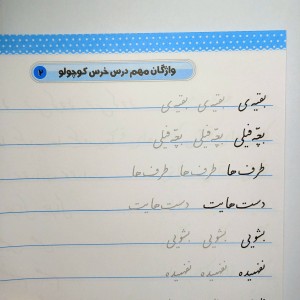 واژگان مهم درس خرس کوچولو ۲
بقیه‌ی بقیه‌ی بقیه‌ی
بچّه فیلی بچّه فیلی بچّه فیلی
ظرف‌ها ظرف‌ها ظرف‌ها
دست‌هایت دست‌هایت
بشویی بشویی بشویی
نفهمیده نفهمیده نفهمیده